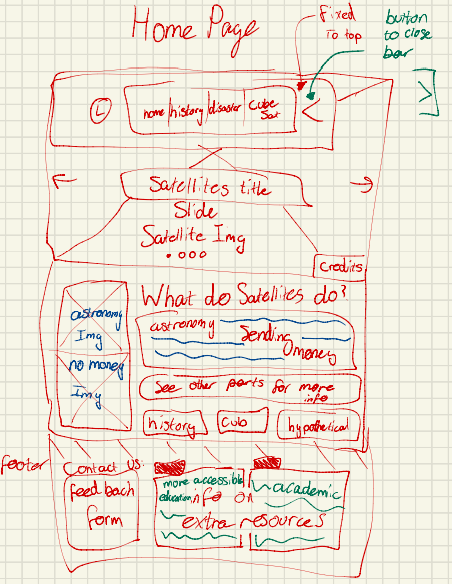 Home Page
fixed
To top
button
to close
bar
L
home | history | disaster | Cube
Sat
<
>
Satellites title
Slide
Satellite Img
Credits
What do Satellites do?
astronomy
Img
no money
Img
astronomy
Sending
0money
See other parts for more
info
history
Cub
hypothetical
footer
Contact us:
feed bach
form
more accessible
education
info on
academic
extra resources